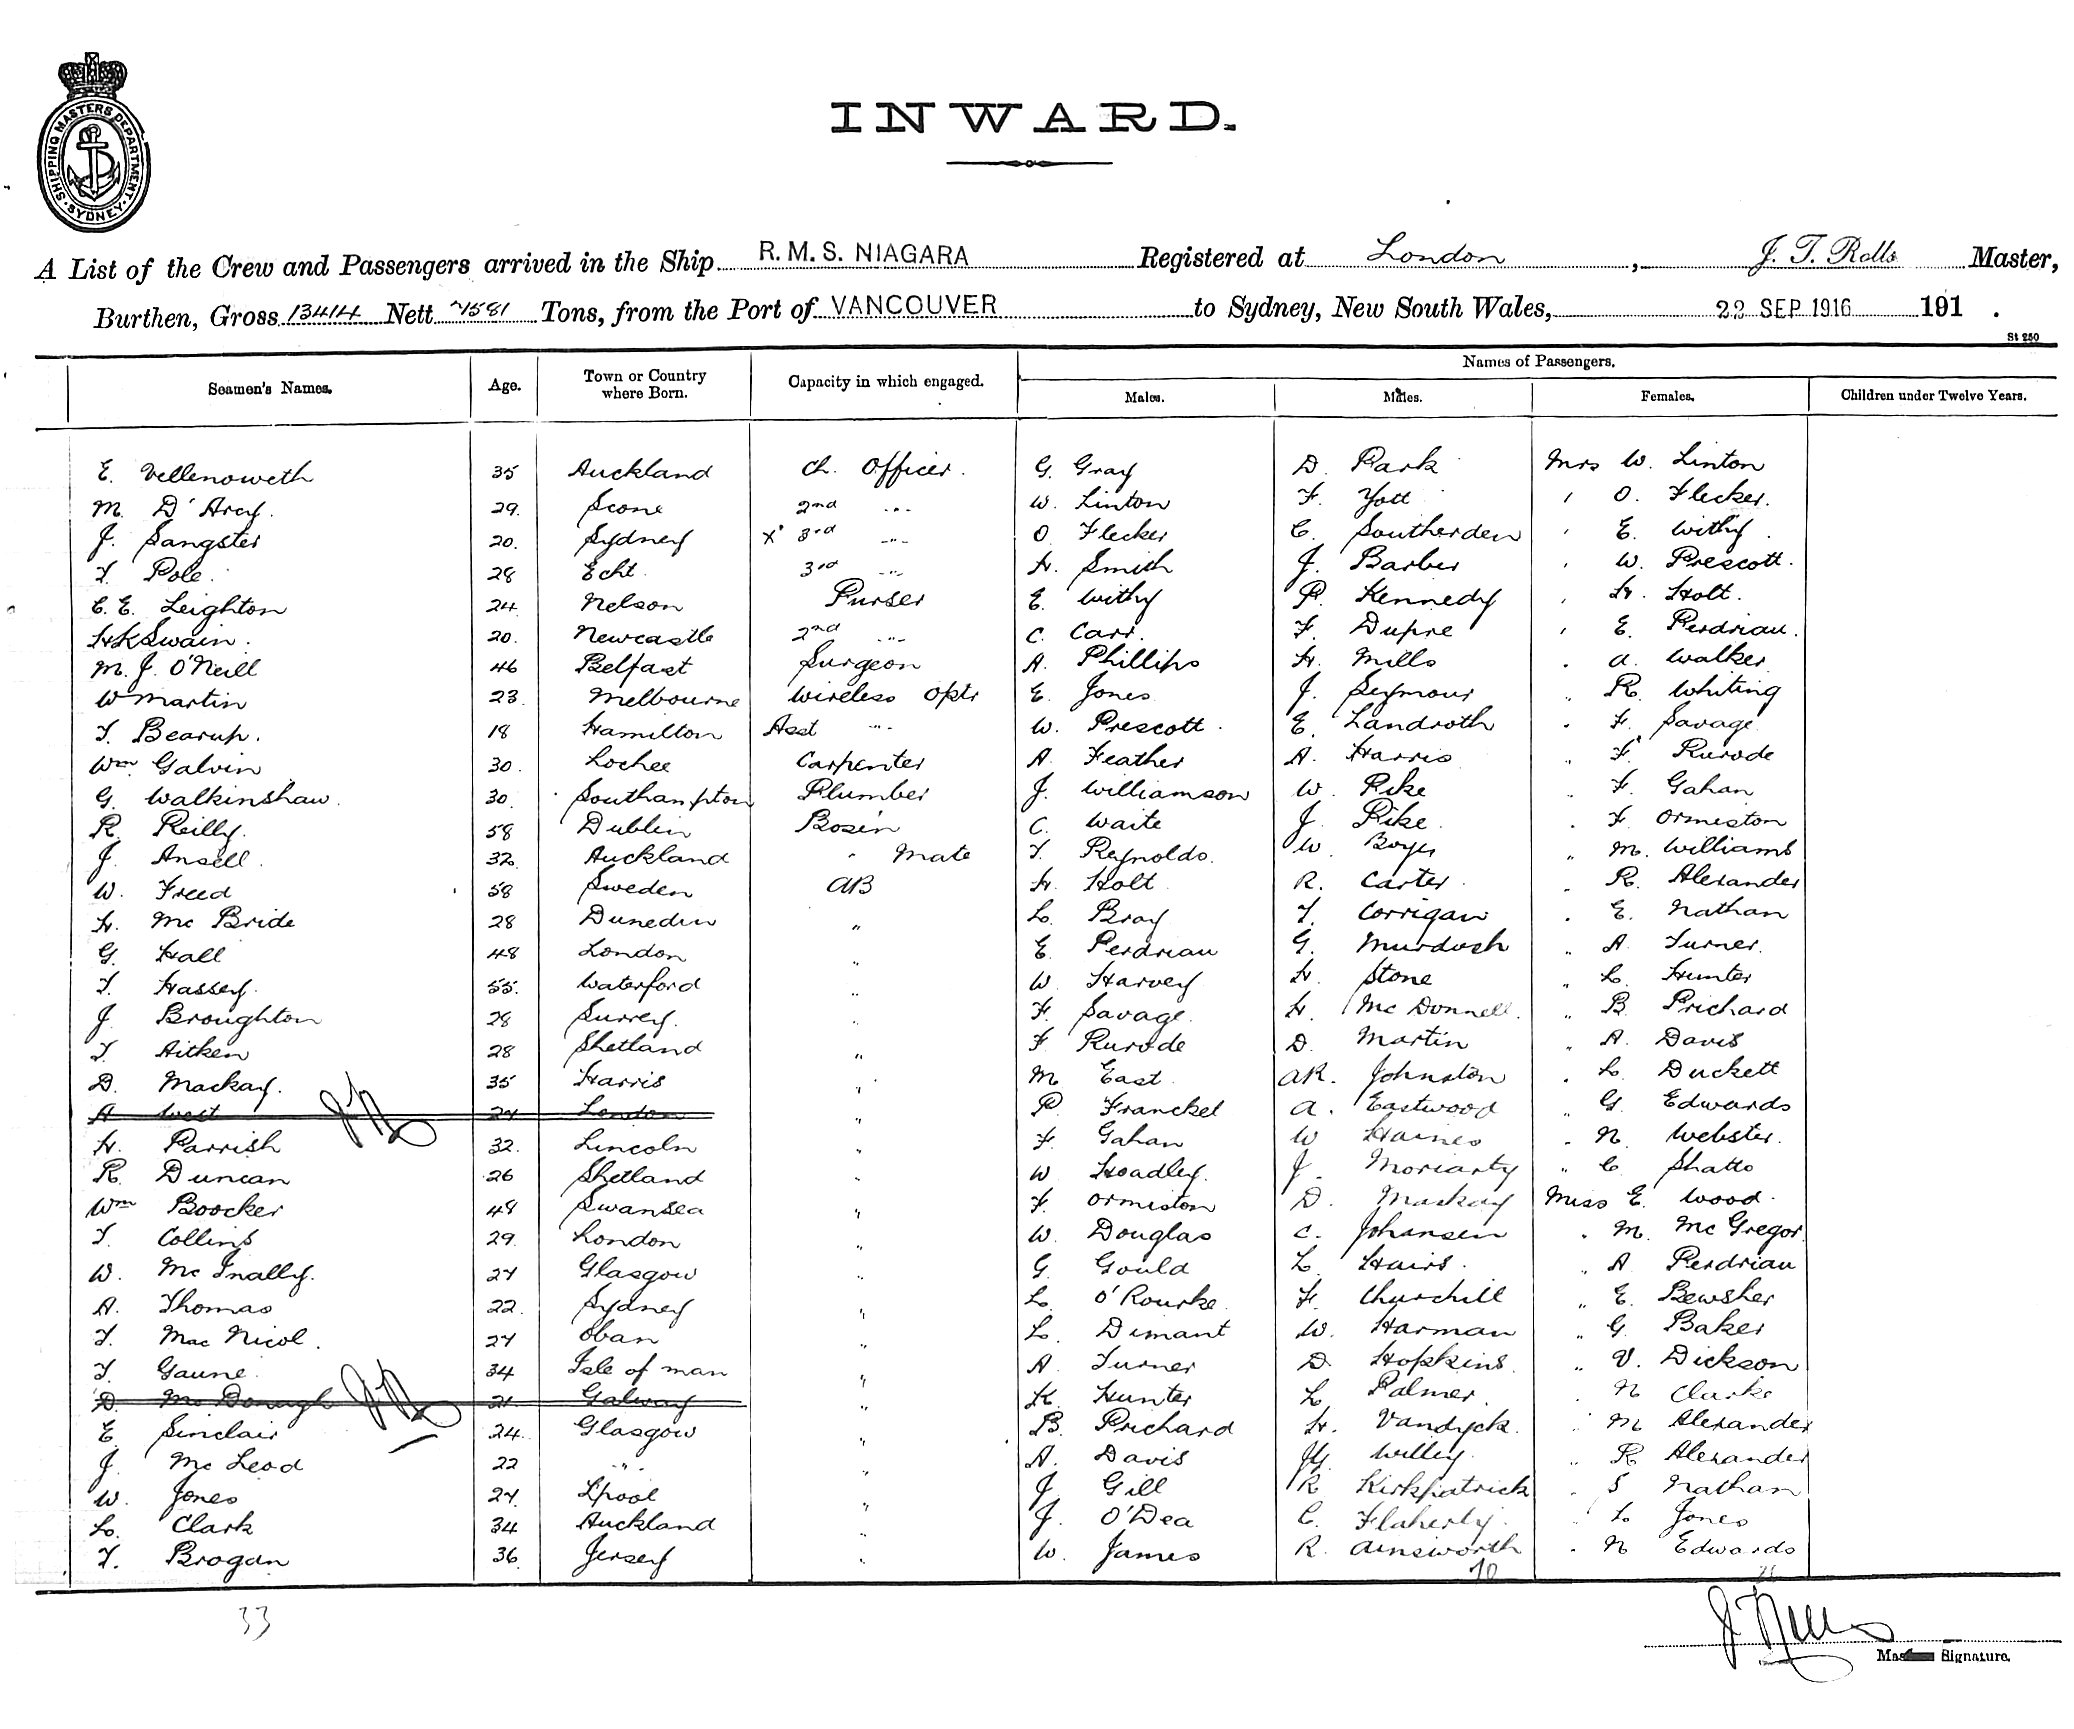 SHIPPING MASTERS DEPARTMENT · SYDNEY ·
INWARD.
A List of the Crew and Passengers arrived in the Ship R.M.S. NIAGARA Registered at London, J. T. Rolls Master,
Burthen, Gross 13414 Nett 7581 Tons, from the Port of VANCOUVER to Sydney, New South Wales, 22 SEP 1916 191 .
St 250
Names of Passengers.
Seamen's Names. Age. Town or Country where Born. Capacity in which engaged. Males. Males. Females. Children under Twelve Years.
E. Vellenoweth 35 Auckland Ch. Officer. G. Gray D. Park Mrs W. Linton
M. D'Arcy. 29. Scone 2nd " W. Linton F. Yott " O. Flecker.
J. Sangster 20. Sydney X 3rd " O Flecker C. Southerden " E. Withy.
T. Pole. 28 Echt. 3rd " H. Smith J. Barber " W. Prescott.
C. E. Leighton 24 Nelson Purser E. Withy P. Kennedy " H. Holt.
H K Swain. 20. Newcastle 2nd " C. Carr. F. Dupre " E. Perdriau.
M. J. O'Neill 46 Belfast Surgeon A. Phillips H. Mills " A. Walker
W Martin 23. Melbourne Wireless Optr E. Jones J. Seymour " R. Whiting
T. Bearup. 18 Hamilton Asst " W. Prescott. E. Landroth " F. Savage
Wm Galvin 30. Lochee Carpenter A. Feather A. Harris " F. Rurode
G. Walkinshaw. 30. Southampton Plumber J. Williamson W. Pike " F. Gahan
R. Reilly. 58 Dublin Bosen C. Waite J. Pike. " F Ormiston
J. Ansell. 32. Auckland " Mate T. Reynolds. W. Boyer " M. Williams
W. Freed 58 Sweden AB H. Holt R. Carter. " R. Alexander
H. Mc Bride 28 Dunedin " L. Bray T. Corrigan " E. Nathan
G. Hall 48 London " E. Perdriau G. Murdoch " A. Turner.
T. Hassey. 55. Waterford " W. Harvey H. Stone " L. Hunter
J. Broughton 28 Surrey. " F. Savage. H. Mc Donnell. " B. Prichard
T. Aitken 28 Shetland " F Rurode D. Martin " A. Davis
D. Mackay. 35 Harris " M East. AR. Johnston " L. Duckett
A West 24 London " P. Franckel A. Eastwood " G. Edwards
H. Parrish 32. Lincoln " F. Gahan W Haines " N. Webster.
R. Duncan 26 Shetland " W Hoadley. J. Moriarty " C. Shatto
Wm Boocker 48 Swansea " F. Ormiston D. Mackay Miss E. Wood.
T. Collins 29. London " W. Douglas C. Johansen " M. Mc Gregor
W. Mc Inally. 24 Glasgow " G. Gould L. Hairs. " A Perdriau
A. Thomas 22. Sydney " L. O'Rourke. H. Churchill " E. Bewsher
T. Mac Nicol. 24 Oban " L. Dimant W. Harman " G. Baker
T. Gaune. 34 Isle of Man " A. Turner D. Hopkins. " V. Dickson
D. Mc Donagh 21 Galway " K. Hunter L Palmer. " N Clarke
E Sinclair 24. Glasgow " B. Prichard H. Vandyck. " M Alexander
J. Mc Leod 22 " " A. Davis Willey. " R Alexander
W. Jones 24. Lpool " J. Gill R Kirkpatrick " S Nathan
L. Clark 34 Auckland " J. O'Dea C. Flaherty. " L Jones
T. Brogan 36. Jersey " W. James R. Ainsworth " N Edwards
70
33
Signature.